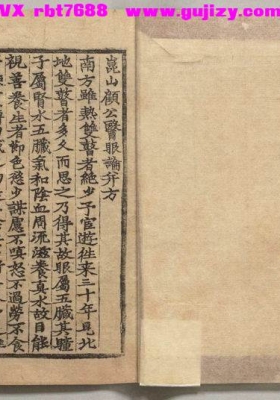 VX rbt7688 www.gujizy.com
崑山顧公醫眼論并方
南方雖熱雙瞽者絶少予宦遊往來三十年見北
地雙瞽者多久而思之乃得其故眼屬五臟其瞳
子屬腎水五臟氣和陰血周流滋養真水故目能
視善養生者節色慾少謀慮不嗔怒不過勞不食